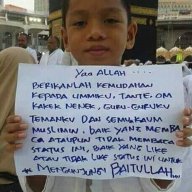 Yaa ALLAH ....
BERIKANLAH KEMUDAHAN
KEPADA UMMIKU, TANTE-OM
KAKEK NENEK, GURU-GURUKU
TEMANKU DAN SEMUA KAUM
MUSLIMIN, BAIK YANG MEMBA
CA ATAUPUN TIDAK MEMBACA
STATUS INI, BAIK YANG LIKE
ATAU TIDAK LIKE STATUS INI UNTUK
* MENGUNJUNGI BAITULLAH...